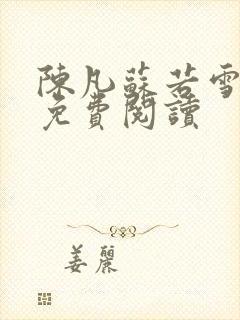 陳凡蘇若雪
免費閱讀
姜麗